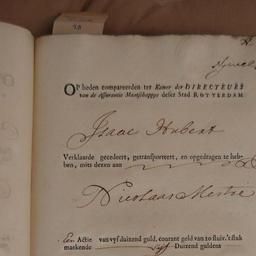 OP heden compareerden ter Kamer der DIRECTEURS
van de Assurantie Maatschappye deser Stad ROTTERDAM
Isaac Hubert
Verklaarde gecedeert, getransporteert, en opgedragen te heb-
ben, mits dezen aan
Nicolaas
Een Actie van vyf duizend guld. courant geld van 20 stuiv. 't stuk
maekende Duizend guldens